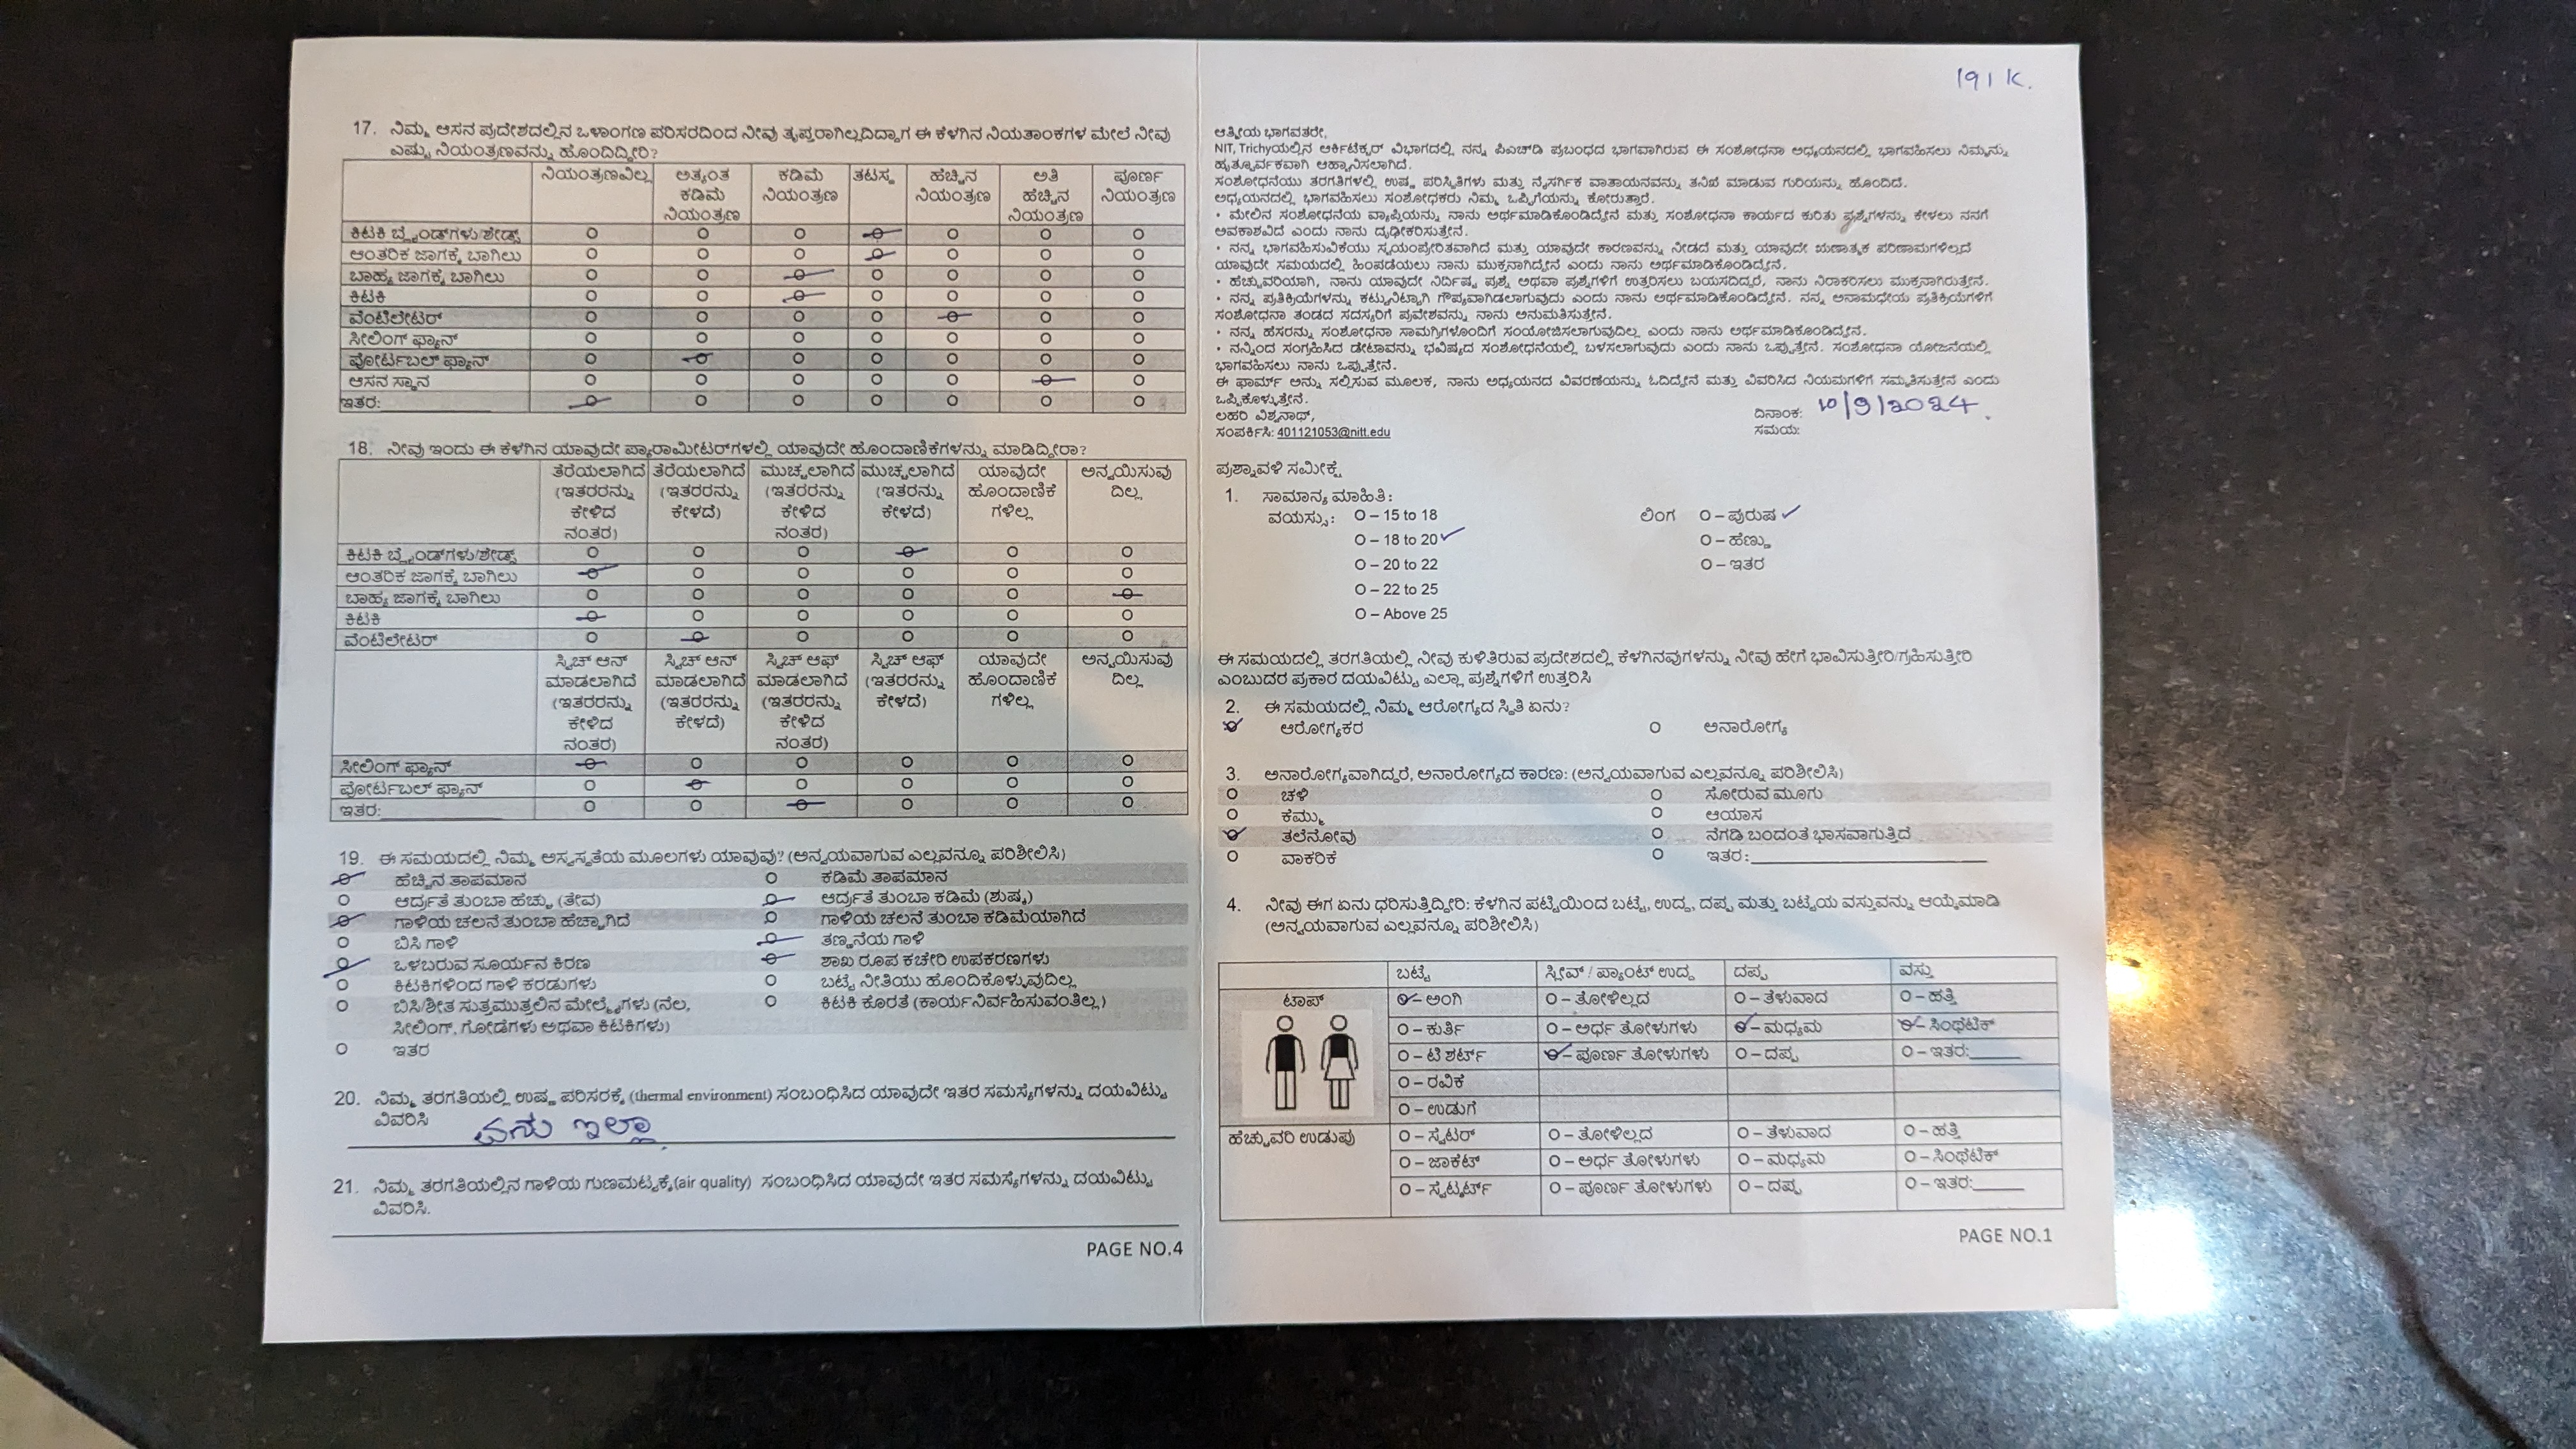 17. ನಿಮ್ಮ ಆಸನ ಪ್ರದೇಶದಲ್ಲಿನ ಒಳಾಂಗಣ ಪರಿಸರದಿಂದ ನೀವು ತೃಪ್ತರಾಗಿಲ್ಲದಿದ್ದಾಗ ಈ ಕೆಳಗಿನ ನಿಯತಾಂಕಗಳ ಮೇಲೆ ನೀವು
ಎಷ್ಟು ನಿಯಂತ್ರಣವನ್ನು ಹೊಂದಿದ್ದೀರಿ?
ನಿಯಂತ್ರಣವಿಲ್ಲ ಅತ್ಯಂತ ಕಡಿಮೆ ತಟಸ್ಥ ಹೆಚ್ಚಿನ ಅತಿ ಪೂರ್ಣ
ಕಡಿಮೆ ನಿಯಂತ್ರಣ ನಿಯಂತ್ರಣ ಹೆಚ್ಚಿನ ನಿಯಂತ್ರಣ
ನಿಯಂತ್ರಣ ನಿಯಂತ್ರಣ
ಕಿಟಕಿ ಬ್ಲೈಂಡ್‌ಗಳು/ಶೇಡ್ಸ್ O O O O O O O
ಆಂತರಿಕ ಜಾಗಕ್ಕೆ ಬಾಗಿಲು O O O O O O O
ಬಾಹ್ಯ ಜಾಗಕ್ಕೆ ಬಾಗಿಲು O O O O O O O
ಕಿಟಕಿ O O O O O O O
ವೆಂಟಿಲೇಟರ್ O O O O O O O
ಸೀಲಿಂಗ್ ಫ್ಯಾನ್ O O O O O O O
ಪೋರ್ಟಬಲ್ ಫ್ಯಾನ್ O O O O O O O
ಆಸನ ಸ್ಥಾನ O O O O O O O
ಇತರ: O O O O O O O
18. ನೀವು ಇಂದು ಈ ಕೆಳಗಿನ ಯಾವುದೇ ಪ್ಯಾರಾಮೀಟರ್‌ಗಳಲ್ಲಿ ಯಾವುದೇ ಹೊಂದಾಣಿಕೆಗಳನ್ನು ಮಾಡಿದ್ದೀರಾ?
ತೆರೆಯಲಾಗಿದೆ ತೆರೆಯಲಾಗಿದೆ ಮುಚ್ಚಲಾಗಿದೆ ಮುಚ್ಚಲಾಗಿದೆ ಯಾವುದೇ ಅನ್ವಯಿಸುವು
(ಇತರರನ್ನು (ಇತರರನ್ನು (ಇತರರನ್ನು (ಇತರರನ್ನು ಹೊಂದಾಣಿಕೆ ದಿಲ್ಲ
ಕೇಳಿದ ಕೇಳದೆ) ಕೇಳಿದ ಕೇಳದೆ) ಗಳಿಲ್ಲ
ನಂತರ) ನಂತರ)
ಕಿಟಕಿ ಬ್ಲೈಂಡ್‌ಗಳು/ಶೇಡ್ಸ್ O O O O O O
ಆಂತರಿಕ ಜಾಗಕ್ಕೆ ಬಾಗಿಲು O O O O O O
ಬಾಹ್ಯ ಜಾಗಕ್ಕೆ ಬಾಗಿಲು O O O O O O
ಕಿಟಕಿ O O O O O O
ವೆಂಟಿಲೇಟರ್ O O O O O O
ಸ್ವಿಚ್ ಆನ್ ಸ್ವಿಚ್ ಆನ್ ಸ್ವಿಚ್ ಆಫ್ ಸ್ವಿಚ್ ಆಫ್ ಯಾವುದೇ ಅನ್ವಯಿಸುವು
ಮಾಡಲಾಗಿದೆ ಮಾಡಲಾಗಿದೆ ಮಾಡಲಾಗಿದೆ (ಇತರರನ್ನು ಹೊಂದಾಣಿಕೆ ದಿಲ್ಲ
(ಇತರರನ್ನು (ಇತರರನ್ನು (ಇತರರನ್ನು ಕೇಳದೆ) ಗಳಿಲ್ಲ
ಕೇಳಿದ ಕೇಳದೆ) ಕೇಳಿದ
ನಂತರ) ನಂತರ)
ಸೀಲಿಂಗ್ ಫ್ಯಾನ್ O O O O O O
ಪೋರ್ಟಬಲ್ ಫ್ಯಾನ್ O O O O O O
ಇತರ: O O O O O O
19. ಈ ಸಮಯದಲ್ಲಿ ನಿಮ್ಮ ಅಸ್ವಸ್ಥತೆಯ ಮೂಲಗಳು ಯಾವುವು? (ಅನ್ವಯವಾಗುವ ಎಲ್ಲವನ್ನೂ ಪರಿಶೀಲಿಸಿ)
O ಹೆಚ್ಚಿನ ತಾಪಮಾನ O ಕಡಿಮೆ ತಾಪಮಾನ
O ಆರ್ದ್ರತೆ ತುಂಬಾ ಹೆಚ್ಚು (ತೇವ) O ಆರ್ದ್ರತೆ ತುಂಬಾ ಕಡಿಮೆ (ಶುಷ್ಕ)
O ಗಾಳಿಯ ಚಲನೆ ತುಂಬಾ ಹೆಚ್ಚಾಗಿದೆ O ಗಾಳಿಯ ಚಲನೆ ತುಂಬಾ ಕಡಿಮೆಯಾಗಿದೆ
O ಬಿಸಿ ಗಾಳಿ O ತಣ್ಣನೆಯ ಗಾಳಿ
O ಒಳಬರುವ ಸೂರ್ಯನ ಕಿರಣ O ಶಾಖ ರೂಪ ಕಚೇರಿ ಉಪಕರಣಗಳು
O ಕಿಟಕಿಗಳಿಂದ ಗಾಳಿ ಕರಡುಗಳು O ಬಟ್ಟೆ ನೀತಿಯು ಹೊಂದಿಕೊಳ್ಳುವುದಿಲ್ಲ
O ಬಿಸಿ/ಶೀತ ಸುತ್ತಮುತ್ತಲಿನ ಮೇಲ್ಮೈಗಳು (ನೆಲ, O ಕಿಟಕಿ ಕೊರತೆ (ಕಾರ್ಯನಿರ್ವಹಿಸುವಂತಿಲ್ಲ)
ಸೀಲಿಂಗ್, ಗೋಡೆಗಳು ಅಥವಾ ಕಿಟಕಿಗಳು)
O ಇತರ
20. ನಿಮ್ಮ ತರಗತಿಯಲ್ಲಿ ಉಷ್ಣ ಪರಿಸರಕ್ಕೆ (thermal environment) ಸಂಬಂಧಿಸಿದ ಯಾವುದೇ ಇತರ ಸಮಸ್ಯೆಗಳನ್ನು ದಯವಿಟ್ಟು
ವಿವರಿಸಿ ಇಲ್ಲಾ
21. ನಿಮ್ಮ ತರಗತಿಯಲ್ಲಿನ ಗಾಳಿಯ ಗುಣಮಟ್ಟಕ್ಕೆ(air quality) ಸಂಬಂಧಿಸಿದ ಯಾವುದೇ ಇತರ ಸಮಸ್ಯೆಗಳನ್ನು ದಯವಿಟ್ಟು
ವಿವರಿಸಿ.
PAGE NO.4
191 K.
ಆತ್ಮೀಯ ಭಾಗವತರೇ,
NIT, Trichyಯಲ್ಲಿನ ಆರ್ಕಿಟೆಕ್ಚರ್ ವಿಭಾಗದಲ್ಲಿ ನನ್ನ ಪಿಎಚ್‌ಡಿ ಪ್ರಬಂಧದ ಭಾಗವಾಗಿರುವ ಈ ಸಂಶೋಧನಾ ಅಧ್ಯಯನದಲ್ಲಿ ಭಾಗವಹಿಸಲು ನಿಮ್ಮನ್ನು
ಹೃತ್ಪೂರ್ವಕವಾಗಿ ಆಹ್ವಾನಿಸಲಾಗಿದೆ.
ಸಂಶೋಧನೆಯು ತರಗತಿಗಳಲ್ಲಿ ಉಷ್ಣ ಪರಿಸ್ಥಿತಿಗಳು ಮತ್ತು ನೈಸರ್ಗಿಕ ವಾತಾಯನವನ್ನು ತನಿಖೆ ಮಾಡುವ ಗುರಿಯನ್ನು ಹೊಂದಿದೆ.
ಅಧ್ಯಯನದಲ್ಲಿ ಭಾಗವಹಿಸಲು ಸಂಶೋಧಕರು ನಿಮ್ಮ ಒಪ್ಪಿಗೆಯನ್ನು ಕೋರುತ್ತಾರೆ.
• ಮೇಲಿನ ಸಂಶೋಧನೆಯ ವ್ಯಾಪ್ತಿಯನ್ನು ನಾನು ಅರ್ಥಮಾಡಿಕೊಂಡಿದ್ದೇನೆ ಮತ್ತು ಸಂಶೋಧನಾ ಕಾರ್ಯದ ಕುರಿತು ಪ್ರಶ್ನೆಗಳನ್ನು ಕೇಳಲು ನನಗೆ
ಅವಕಾಶವಿದೆ ಎಂದು ನಾನು ದೃಢೀಕರಿಸುತ್ತೇನೆ.
• ನನ್ನ ಭಾಗವಹಿಸುವಿಕೆಯು ಸ್ವಯಂಪ್ರೇರಿತವಾಗಿದೆ ಮತ್ತು ಯಾವುದೇ ಕಾರಣವನ್ನು ನೀಡದೆ ಮತ್ತು ಯಾವುದೇ ಋಣಾತ್ಮಕ ಪರಿಣಾಮಗಳಿಲ್ಲದೆ
ಯಾವುದೇ ಸಮಯದಲ್ಲಿ ಹಿಂಪಡೆಯಲು ನಾನು ಮುಕ್ತನಾಗಿದ್ದೇನೆ ಎಂದು ನಾನು ಅರ್ಥಮಾಡಿಕೊಂಡಿದ್ದೇನೆ.
• ಹೆಚ್ಚುವರಿಯಾಗಿ, ನಾನು ಯಾವುದೇ ನಿರ್ದಿಷ್ಟ ಪ್ರಶ್ನೆ ಅಥವಾ ಪ್ರಶ್ನೆಗಳಿಗೆ ಉತ್ತರಿಸಲು ಬಯಸದಿದ್ದರೆ, ನಾನು ನಿರಾಕರಿಸಲು ಮುಕ್ತನಾಗಿರುತ್ತೇನೆ.
• ನನ್ನ ಪ್ರತಿಕ್ರಿಯೆಗಳನ್ನು ಕಟ್ಟುನಿಟ್ಟಾಗಿ ಗೌಪ್ಯವಾಗಿಡಲಾಗುವುದು ಎಂದು ನಾನು ಅರ್ಥಮಾಡಿಕೊಂಡಿದ್ದೇನೆ. ನನ್ನ ಅನಾಮಧೇಯ ಪ್ರತಿಕ್ರಿಯೆಗಳಿಗೆ
ಸಂಶೋಧನಾ ತಂಡದ ಸದಸ್ಯರಿಗೆ ಪ್ರವೇಶವನ್ನು ನಾನು ಅನುಮತಿಸುತ್ತೇನೆ.
• ನನ್ನ ಹೆಸರನ್ನು ಸಂಶೋಧನಾ ಸಾಮಗ್ರಿಗಳೊಂದಿಗೆ ಸಂಯೋಜಿಸಲಾಗುವುದಿಲ್ಲ ಎಂದು ನಾನು ಅರ್ಥಮಾಡಿಕೊಂಡಿದ್ದೇನೆ.
• ನನ್ನಿಂದ ಸಂಗ್ರಹಿಸಿದ ಡೇಟಾವನ್ನು ಭವಿಷ್ಯದ ಸಂಶೋಧನೆಯಲ್ಲಿ ಬಳಸಲಾಗುವುದು ಎಂದು ನಾನು ಒಪ್ಪುತ್ತೇನೆ. ಸಂಶೋಧನಾ ಯೋಜನೆಯಲ್ಲಿ
ಭಾಗವಹಿಸಲು ನಾನು ಒಪ್ಪುತ್ತೇನೆ.
ಈ ಫಾರ್ಮ್ ಅನ್ನು ಸಲ್ಲಿಸುವ ಮೂಲಕ, ನಾನು ಅಧ್ಯಯನದ ವಿವರಣೆಯನ್ನು ಓದಿದ್ದೇನೆ ಮತ್ತು ವಿವರಿಸಿದ ನಿಯಮಗಳಿಗೆ ಸಮ್ಮತಿಸುತ್ತೇನೆ ಎಂದು
ಒಪ್ಪಿಕೊಳ್ಳುತ್ತೇನೆ.
ಲಹರಿ ವಿಶ್ವನಾಥ್, ದಿನಾಂಕ: 10/9/2024.
ಸಂಪರ್ಕಿಸಿ: 401121053@nitt.edu ಸಮಯ:
ಪ್ರಶ್ನಾವಳಿ ಸಮೀಕ್ಷೆ
1. ಸಾಮಾನ್ಯ ಮಾಹಿತಿ:
ವಯಸ್ಸು: O – 15 to 18 ಲಿಂಗ O – ಪುರುಷ ✓
O – 18 to 20 ✓ O – ಹೆಣ್ಣು
O – 20 to 22 O – ಇತರ
O – 22 to 25
O – Above 25
ಈ ಸಮಯದಲ್ಲಿ ತರಗತಿಯಲ್ಲಿ ನೀವು ಕುಳಿತಿರುವ ಪ್ರದೇಶದಲ್ಲಿ ಕೆಳಗಿನವುಗಳನ್ನು ನೀವು ಹೇಗೆ ಭಾವಿಸುತ್ತೀರಿ/ಗ್ರಹಿಸುತ್ತೀರಿ
ಎಂಬುದರ ಪ್ರಕಾರ ದಯವಿಟ್ಟು ಎಲ್ಲಾ ಪ್ರಶ್ನೆಗಳಿಗೆ ಉತ್ತರಿಸಿ
2. ಈ ಸಮಯದಲ್ಲಿ ನಿಮ್ಮ ಆರೋಗ್ಯದ ಸ್ಥಿತಿ ಏನು?
O ಆರೋಗ್ಯಕರ O ಅನಾರೋಗ್ಯ
3. ಅನಾರೋಗ್ಯವಾಗಿದ್ದರೆ, ಅನಾರೋಗ್ಯದ ಕಾರಣ: (ಅನ್ವಯವಾಗುವ ಎಲ್ಲವನ್ನೂ ಪರಿಶೀಲಿಸಿ)
O ಚಳಿ O ಸೋರುವ ಮೂಗು
O ಕೆಮ್ಮು O ಆಯಾಸ
O ತಲೆನೋವು O ನೆಗಡಿ ಬಂದಂತೆ ಭಾಸವಾಗುತ್ತಿದೆ
O ವಾಕರಿಕೆ O ಇತರ:
4. ನೀವು ಈಗ ಏನು ಧರಿಸುತ್ತಿದ್ದೀರಿ: ಕೆಳಗಿನ ಪಟ್ಟಿಯಿಂದ ಬಟ್ಟೆ, ಉದ್ದ, ದಪ್ಪ ಮತ್ತು ಬಟ್ಟೆಯ ವಸ್ತುವನ್ನು ಆಯ್ಕೆಮಾಡಿ
(ಅನ್ವಯವಾಗುವ ಎಲ್ಲವನ್ನೂ ಪರಿಶೀಲಿಸಿ)
ಬಟ್ಟೆ ಸ್ಲೀವ್ / ಪ್ಯಾಂಟ್ ಉದ್ದ ದಪ್ಪ ವಸ್ತು
ಟಾಪ್ O – ಅಂಗಿ O – ತೋಳಿಲ್ಲದ O – ತೆಳುವಾದ O – ಹತ್ತಿ
O – ಕುರ್ತಿ O – ಅರ್ಧ ತೋಳುಗಳು O – ಮಧ್ಯಮ O – ಸಿಂಥೆಟಿಕ್
O – ಟಿ ಶರ್ಟ್ O – ಪೂರ್ಣ ತೋಳುಗಳು O – ದಪ್ಪ O – ಇತರ:
O – ರವಿಕೆ
O – ಉಡುಗೆ
ಹೆಚ್ಚುವರಿ ಉಡುಪು O – ಸ್ವೆಟರ್ O – ತೋಳಿಲ್ಲದ O – ತೆಳುವಾದ O – ಹತ್ತಿ
O – ಜಾಕೆಟ್ O – ಅರ್ಧ ತೋಳುಗಳು O – ಮಧ್ಯಮ O – ಸಿಂಥೆಟಿಕ್
O – ಸ್ವೆಟ್ಶರ್ಟ್ O – ಪೂರ್ಣ ತೋಳುಗಳು O – ದಪ್ಪ O – ಇತರ:
PAGE NO.1